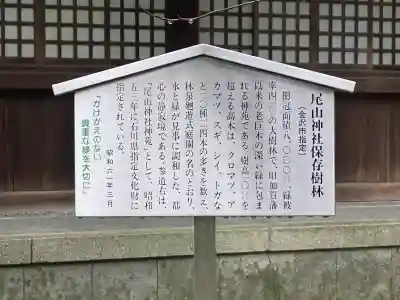 尾山神社保存樹林
(金沢市指定)
開冠面積八、〇〇〇㎡、緑被
率四〇%の大樹林で、旧加賀藩
以来の老巨木の深い緑に包ま
れる神苑である。樹高一〇mを
超える高木は、クロマツ、ア
カマツ、スギ、シイ、トガな
ど二〇種二二四本の多きを数え、
林泉廻遊式庭園の名のとおり、
水と緑が見事に調和した、都
心の静寂境である。参道右は、
「尾山神社神苑」として、昭和
五三年に石川県指定文化財に
指定されている。
昭和六一年三月
『かけがえのない
貴重な緑を大切に』